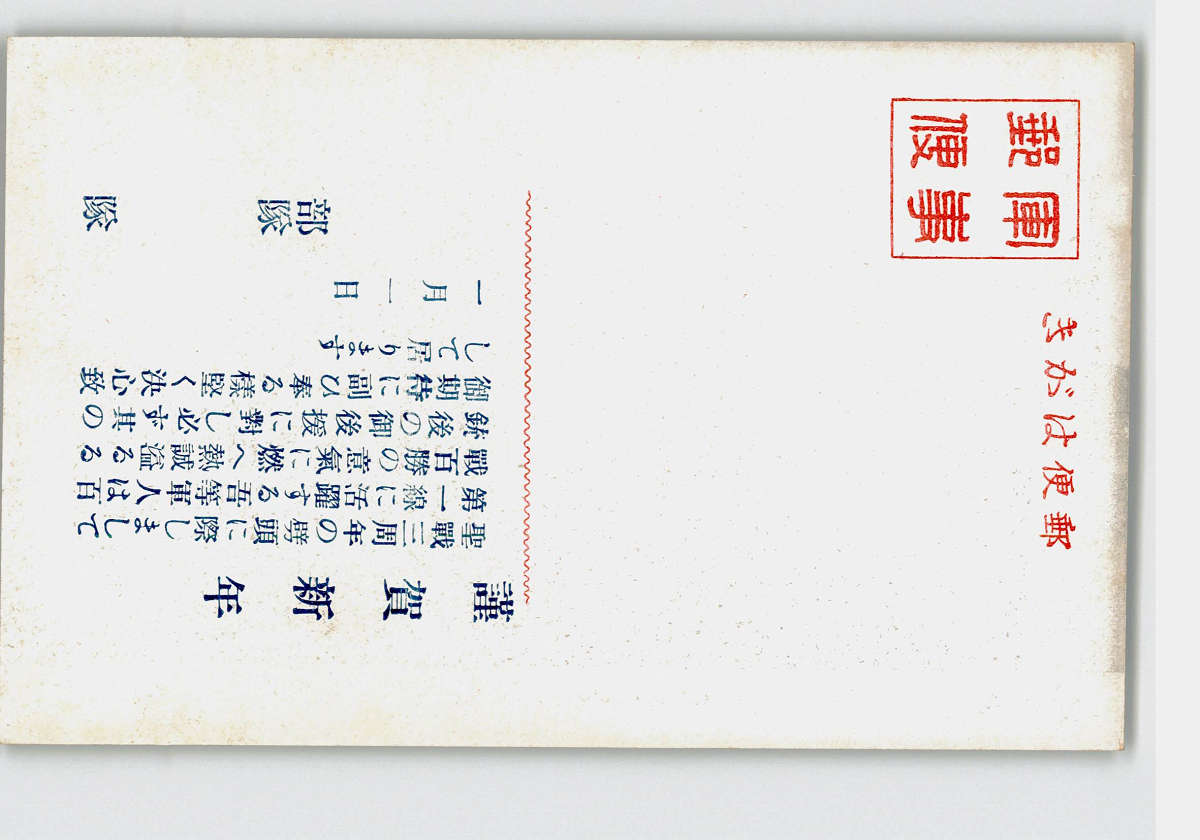 軍事
郵便
郵便はがき
謹賀新年
聖戰三周年の劈頭に際しまして
第一線に活躍する吾等軍人は百
戰百勝の意氣に燃へ熱誠溢るる
銃後の御後援に對し必ず其の
御期待に副ひ奉る樣堅く決心致
して居ります
一月一日
部隊 隊